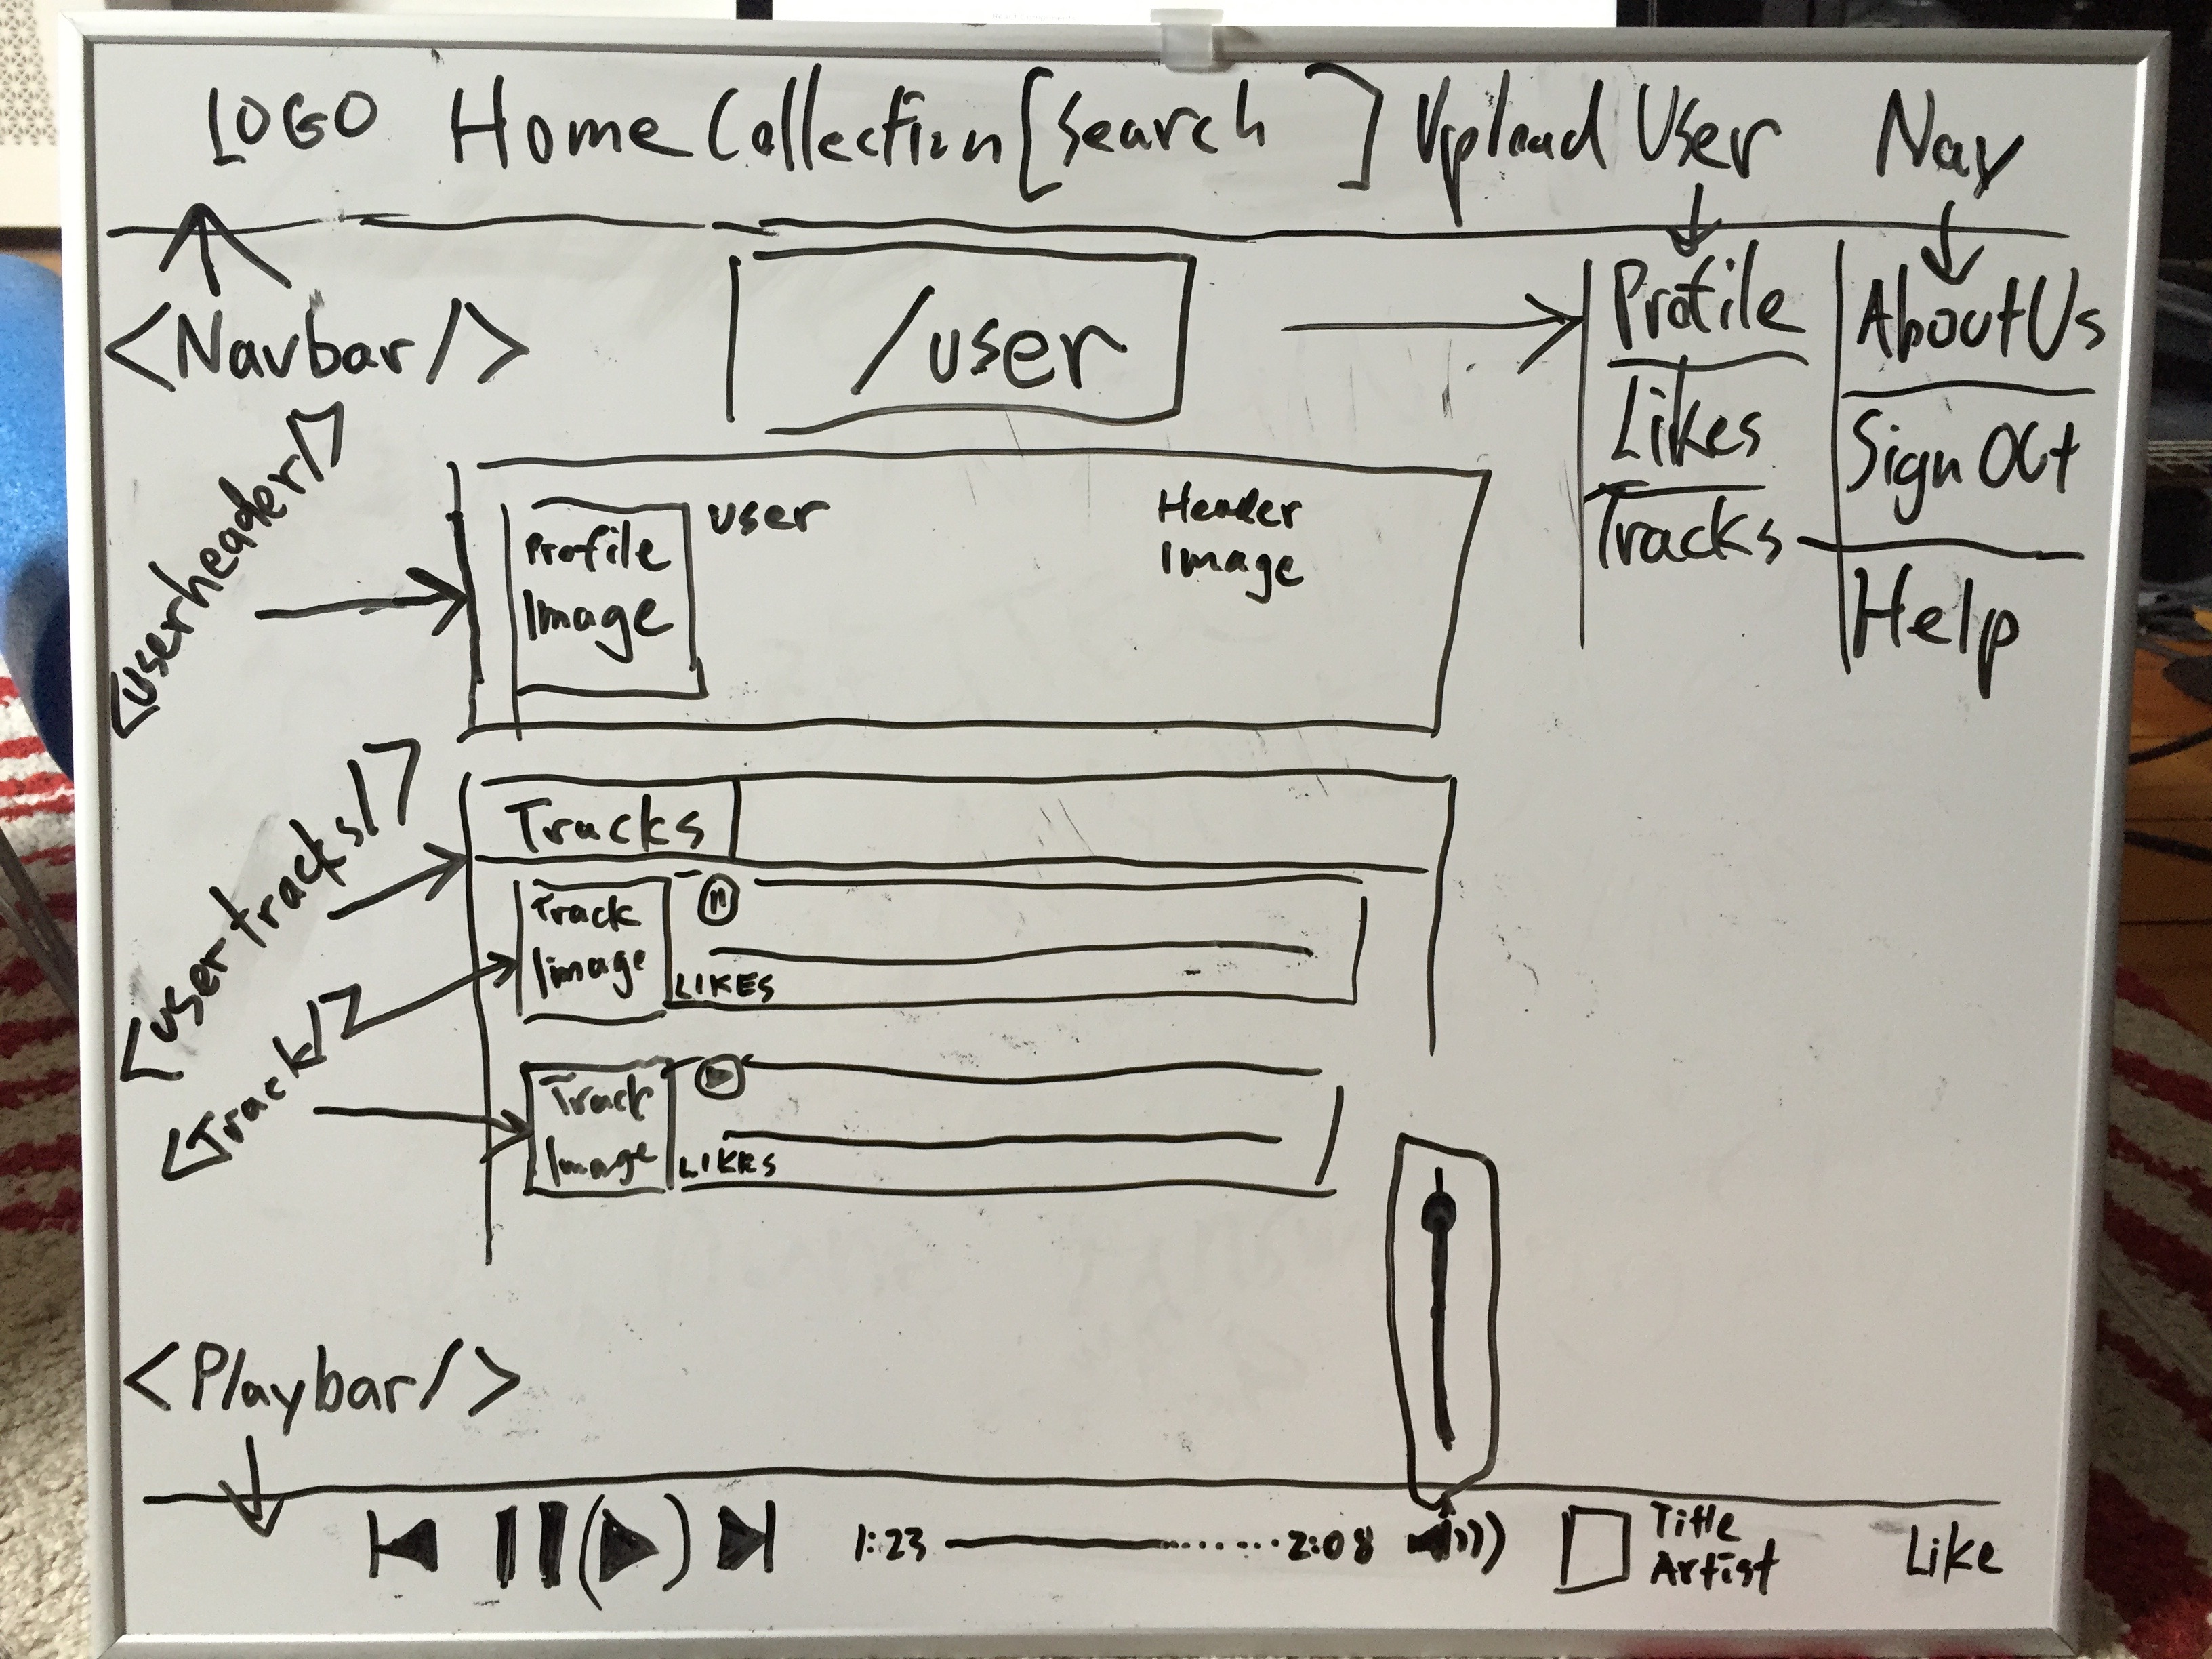 LOGO Home Collection [Search ] Upload User Nav
<Navbar/>
/user
Profile
Likes
Tracks
About Us
Sign Out
Help
<userheader/>
Profile
Image
user
Header
Image
<usertracks/>
Tracks
<Track/>
Track
Image
LIKES
Track
Image
LIKES
<Playbar/>
1:23 2:08
Title
Artist
Like